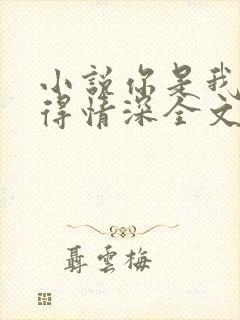 小说你是我
得情深全文
聶雲梅